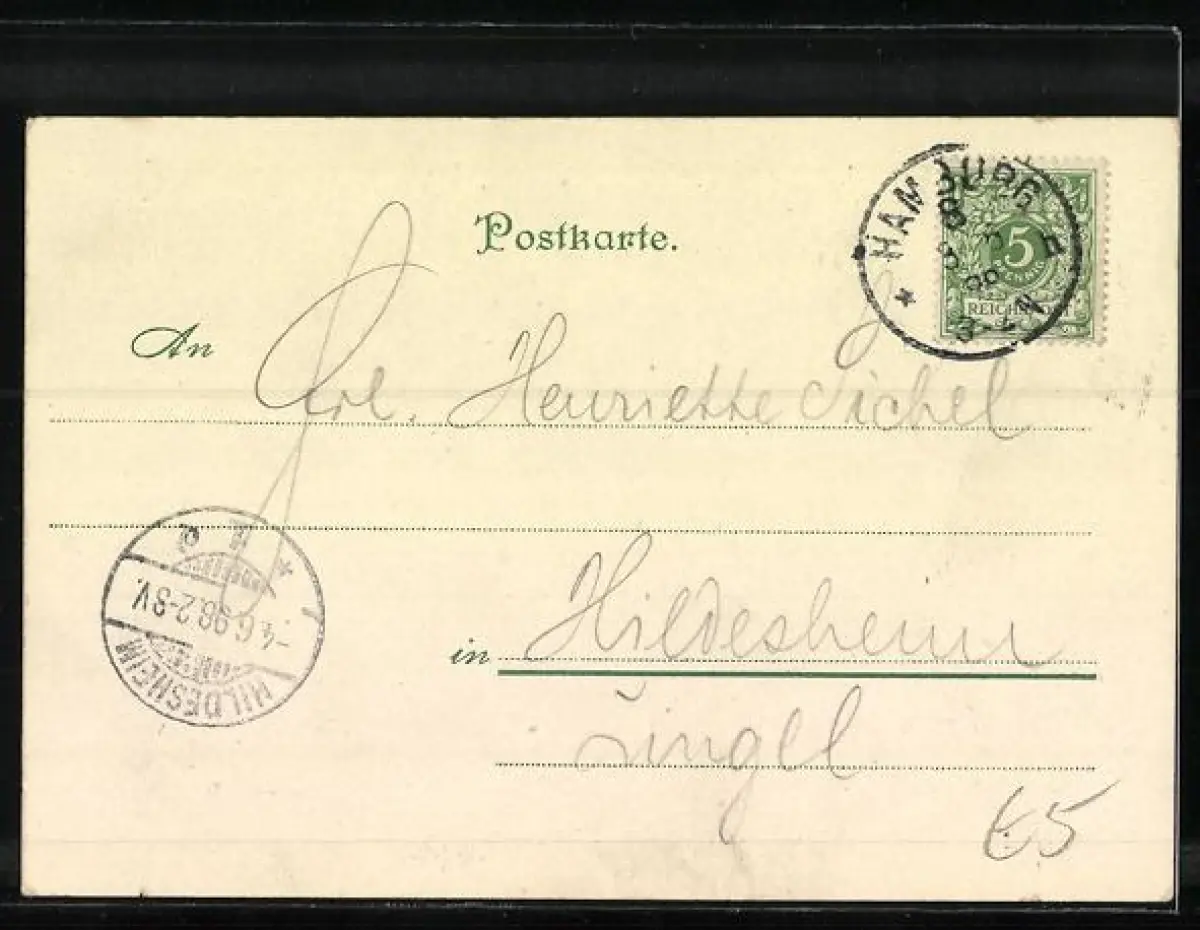 Postkarte.
HAMBURG
5
PFENNIG
REICHSPOST
An
Frl. Henriette Sichel
-4.6.98.2-3V.
HILDESHEIM
in Hildesheim
Zingel